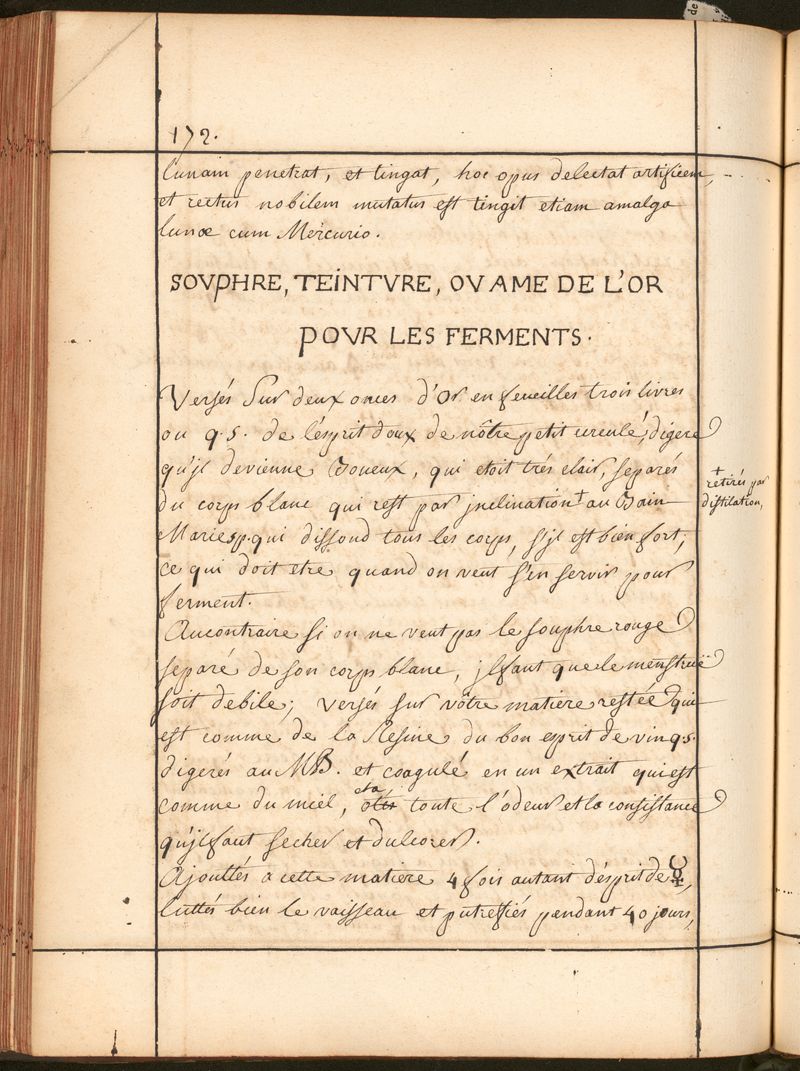 172.
lunam penetrat, et tingat, hoc opus delectat artificem,
et rectus nobilem mutatus est tingit etiam amalga
lunæ cum Mercurio.
SOVPHRE, TEINTVRE, OV AME DE L'OR
POVR LES FERMENTS.
Versés Sur deux onces d'Or en feueilles trois livres
ou q.s. de l'esprit doux de nôtre petit circulé, digere
qu'jl devienne Boueux, qui etoit trés clair, separés
du corps blanc qui rest par jnclination † au Bain
Marie qui dissoud tous les corps, s'jl est bien fort,
ce qui doit etre quand on veut s'en servir pour
ferment.
+
retirés par
distilation,
Aucontraire si on ne veut pas le souphre rouge
separé de son corps blanc, jlfaut que le menstruë
soit debile; versés sur vôtre matiere restée qui
est comme de la Resine du bon esprit de vin q.s.
digerés au MB. et coagulé en un extrait qui est
comme du miel, ota toute l'odeur et la consistance
qu'jlfaut secher et dulcorer.
Ajouttés a cette matiere 4 fois autant d'ésprit de ☿,
luttés bien le vaisseau et putrefiés pendant 40 jours,